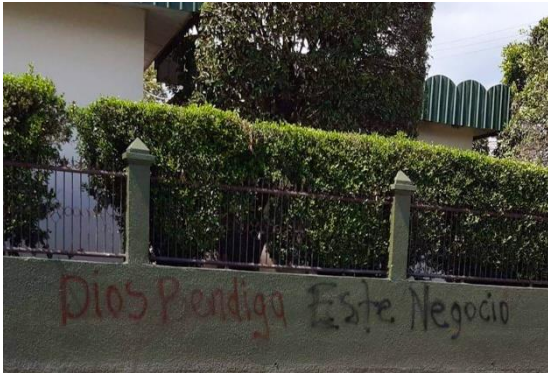 Dios Bendiga Este Negocio